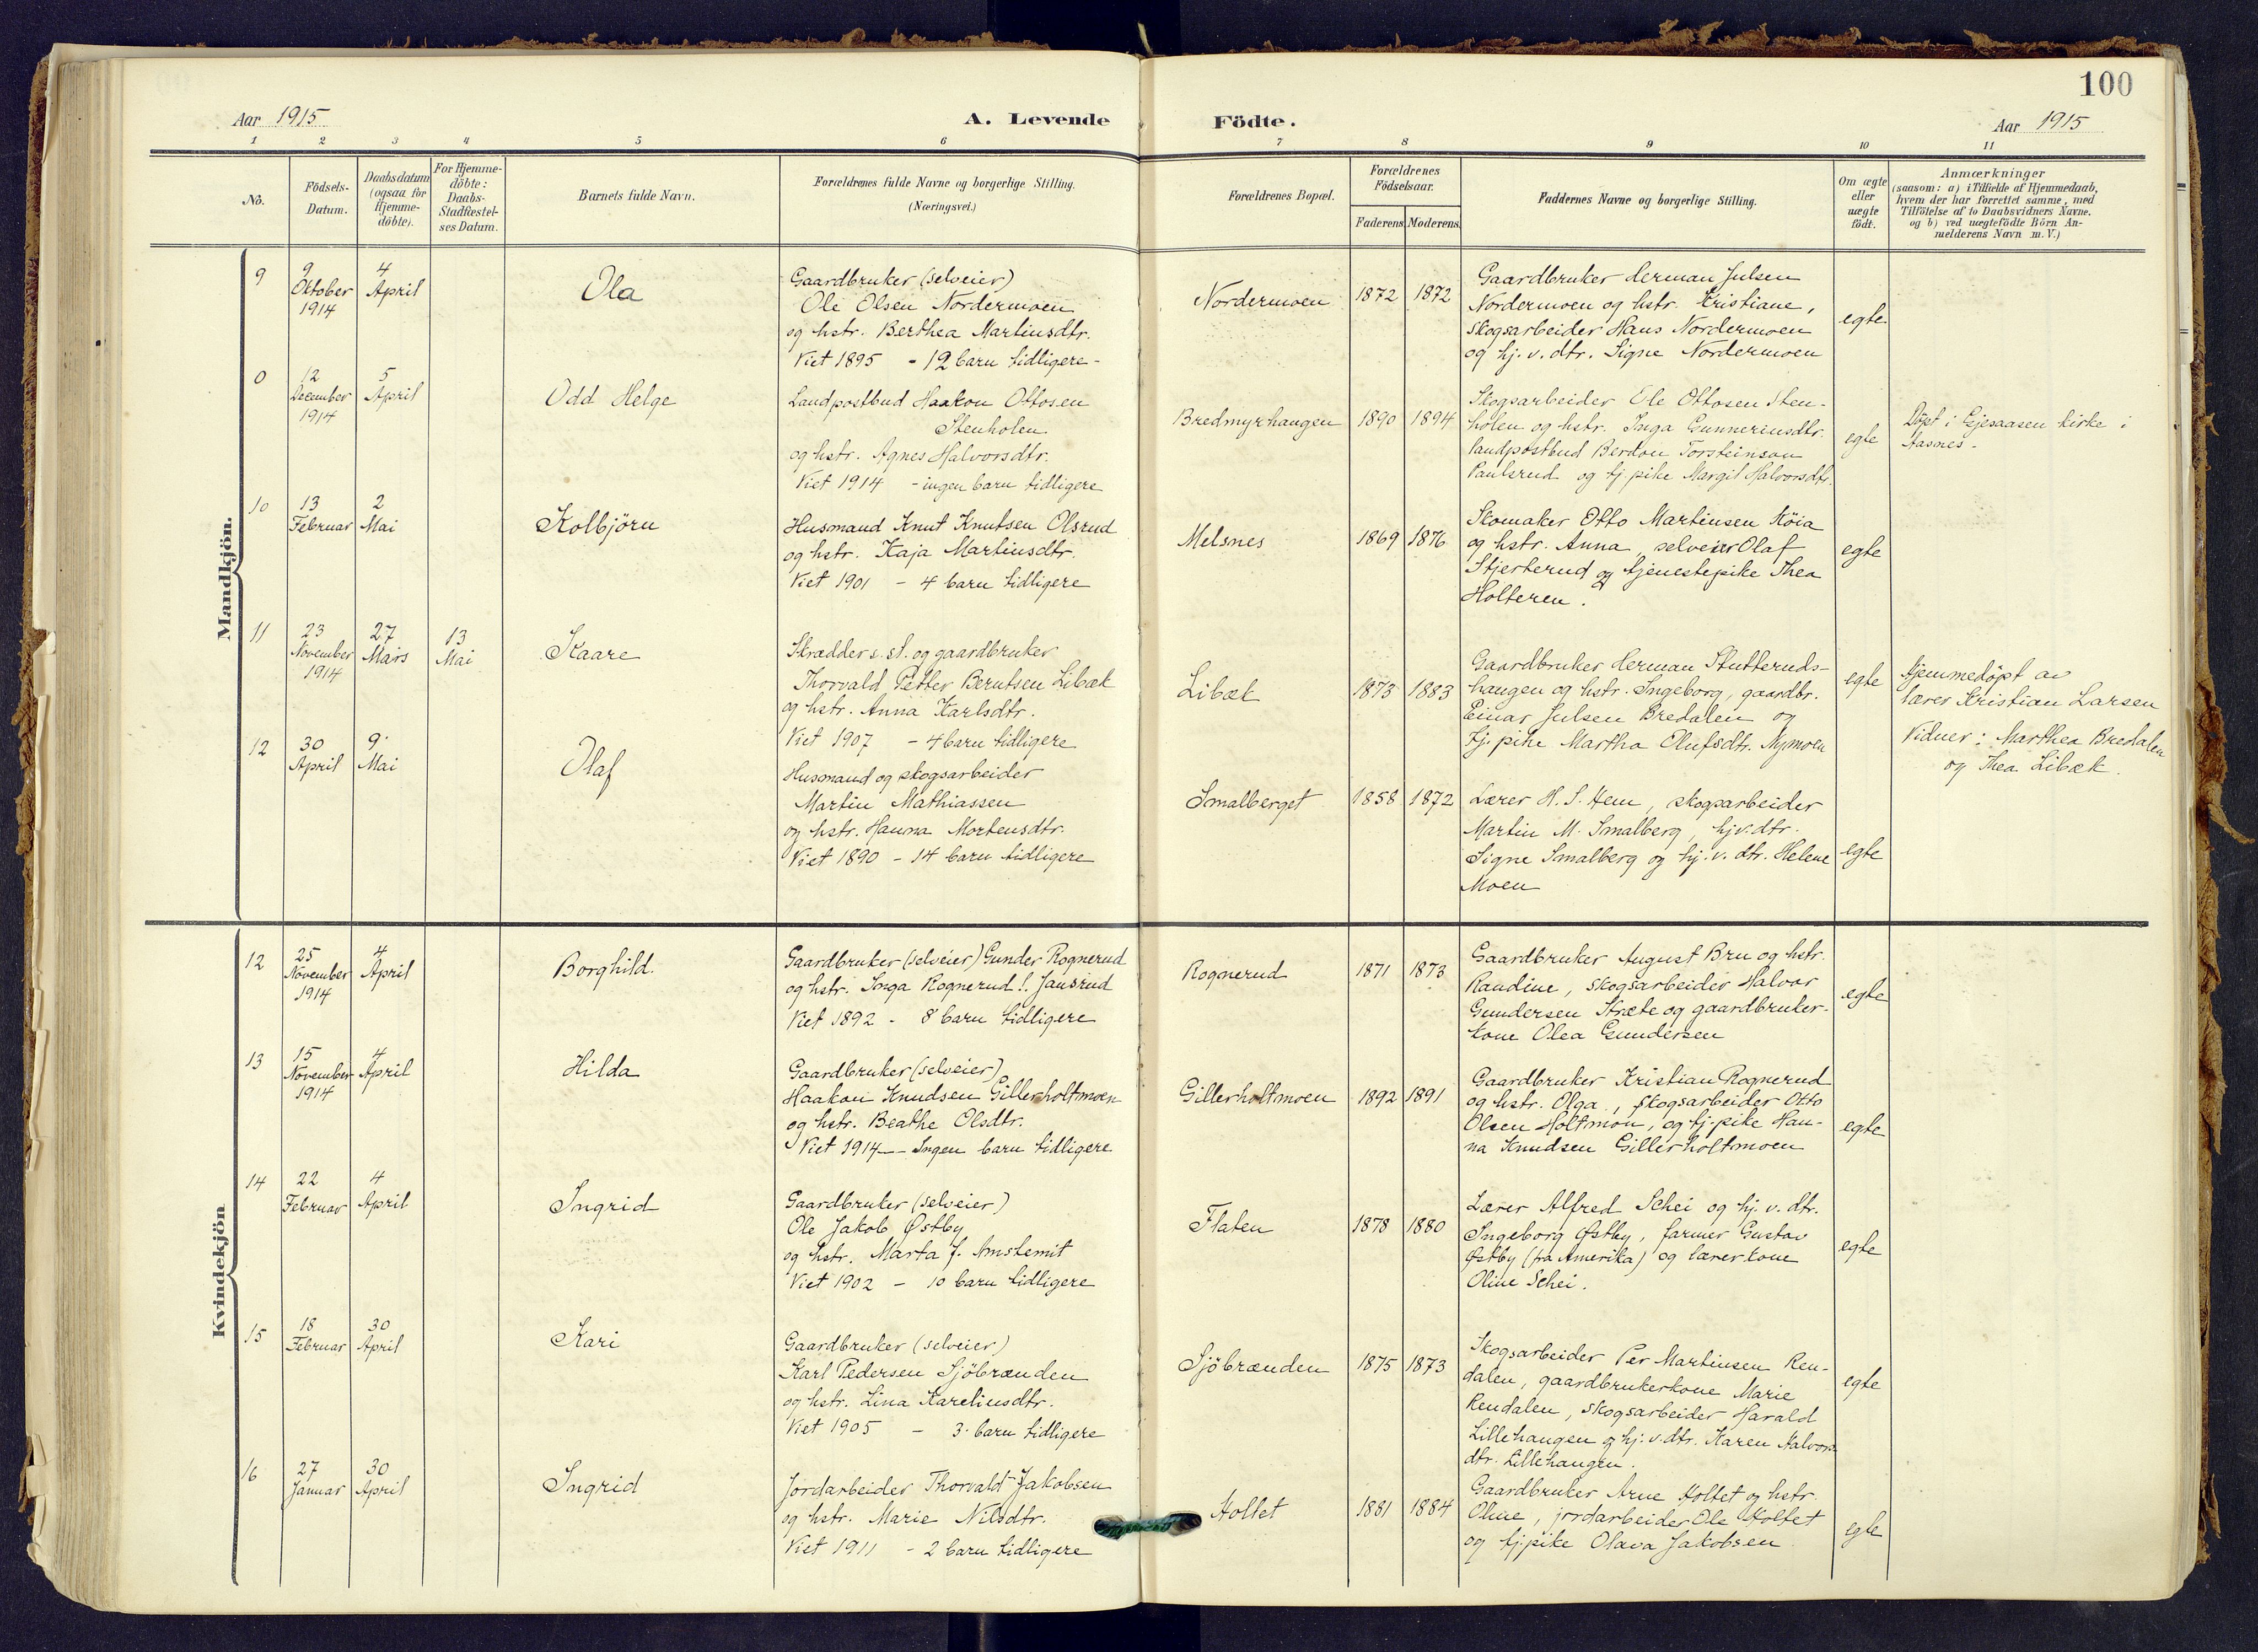 100
Aar 1915
A. Levende
Födte.
Aar 1915
1 2 3 4 5 6 7 8 9 10 11
No.
Födsels-
Datum.
Daabsdatum
(ogsaa for
Hjemme-
döbte).
For Hjemme-
döbte:
Daabs-
Stadfæstel-
ses Datum.
Barnets fulde Navn.
Forældrenes fulde Navne og borgerlige Stilling.
(Næringsvei.)
Forældrenes Bopæl.
Forældrenes
Födselsaar.
Faderens. Moderens.
Faddernes Navne og borgerlige Stilling.
Om ægte
eller
uægte
födt.
Anmærkninger
(saasom: a) i Tilfælde af Hjemmedaab,
hvem der har forrettet samme, med
Tilföielse af to Daabsvidners Navne.
og b) ved uægtefödte Börn An-
melderens Navn m. V.)
Mandkjön.
9
9
Oktober
1914
4
April
Ola
Gaardbruker (selveier)
Ole Olsen Nordermoen
og hstr. Berthea Martinsdtr.
Viet 1895 - 12 barn tidligere -
Nordermoen
1872
1872
Gaardbruker Herman Julsen
Nordermoen og hstr. Kristiane,
skogsarbeider Hans Nordermoen
og hj. v. dtr. Signe Nordermoen
egte
0
12
December
1914
5
April
Odd Helge
Landpostbud Haakon Ottosen
Stenholen
og hstr. Agnes Halvorsdtr.
Viet 1914 - ingen barn tidligere
Bredmyrhaugen
1890
1894
Skogsarbeider Ole Ottosen Sten-
holen og hstr. Inga Gunneriusdtr.
landpostbud Berdon Torsteinson
Paulsrud og tj. pike Margit Halvorsdtr.
egte
Döpt i Gjesaasen kirke i
Aasnes.
10
13
Februar
2
Mai
Kolbjörn
Husmand Knut Knutsen Olsrud
og hstr. Kaja Martinsdtr.
Viet 1901 - 4 barn tidligere
Melsnes
1869
1876
Skomaker Otto Martinsen Köia
og hstr. Anna, selveier Olaf
Stjerterud og tjenestepike Thea
Holteren.
egte
11
23
November
1914
27
Mars
13
Mai
Kaare
Skrædder s. st. og gaardbruker
Thorvald Petter Berntsen Libæk
og hstr. Anna Karlsdtr.
Viet 1907 - 4 barn tidligere
Libæk
1873
1883
Gaardbruker Herman Stutteruds-
haugen og hstr. Ingeborg, gaardbr.
Einar Julsen Bredalen og
tj. pike Martha Olufsdtr. Nymoen
egte
Hjemmedöpt av
lærer Kristian Larsen
Vidner: Marthea Bredalen
og Thea Libæk.
12
30
April
9
Mai
Olaf
Husmand og skogsarbeider
Martin Mathiassen
og hstr. Hanna Mortensdtr.
Viet 1890 - 14 barn tidligere
Smalberget
1858
1872
Lærer H. S. Hem, skogsarbeider
Martin M. Smalberg, hj.v.dtr.
Signe Smalberg og hj. v. dtr. Helene
Moen
egte
Kvindekjön
12
25
November
1914
4
April
Borghild.
Gaardbruker (selveier) Gunder Rognerud
og hstr. Inga Rognerud f. Jansrud
Viet 1892 - 8 barn tidligere
Rognerud
1871
1873
Gaardbruker August Bru og hstr.
Randine, skogsarbeider Halvor
Gundersen Stræte og gaardbruker-
kone Olea Gundersen
egte
13
15
November
1914
4
April
Hilda
Gaardbruker (selveier)
Haakon Knudsen Gillerholtmoen
og hstr. Beathe Olsdtr.
Viet 1914 - Ingen barn tidligere
Gillerholtmoen
1892
1891
Gaardbruker Kristian Rognerud
og hstr. Olga, skogsarbeider Otto
Olsen Holtmon, og tj. pike Han-
na Knudsen Gillerholtmoen
egte
14
22
Februar
4
April
Ingrid
Gaardbruker (selveier)
Ole Jakob Østby
og hstr. Marta J. Amstemit
Viet 1902 - 10 barn tidligere
Flaten
1878
1880
Lærer Alfred Schei og hj. v. dtr.
Ingeborg Østby, farmer Gustav
Østby (fra Amerika) og lærerkone
Oline Schei.
egte
15
18
Februar
30
April
Kari
Gaardbruker (selveier)
Karl Pedersen Sjöbrænden
og hstr. Lina Kareliusdtr.
Viet 1905 - 3 barn tidligere
Sjöbrænden
1875
1873
Skogsarbeider Per Martinsen Ren-
dalen, gaardbrukerkone Marie
Rendalen, skogsarbeider Harald
Lillehaugen og hj. v. dtr. Karen Halvors-
dtr. Lillehaugen.
egte
16
27
Januar
30
April
Ingrid
Jordarbeider Thorvald Jakobsen
og hstr. Marie Nilsdtr.
Viet 1911 - 2 barn tidligere
Holtet
1881
1884
Gaardbruker Arne Holtet og hstr.
Oline, jordarbeider Ole Holtet
og tj. pike Olava Jakobsen
egte